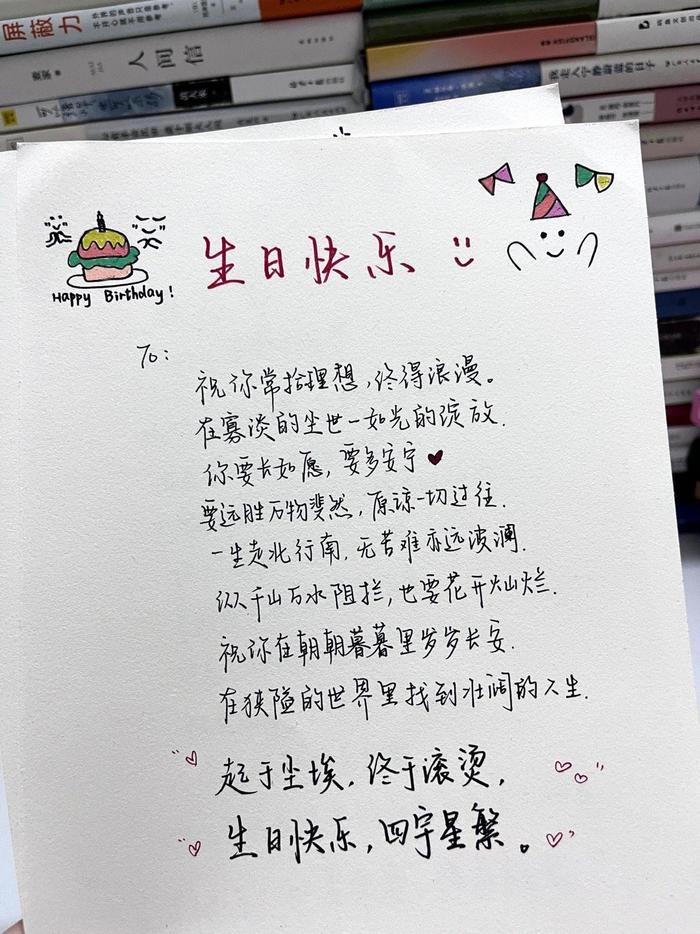 屏蔽力
人间信
我走入宁静蔚蓝的日子
生日快乐
Happy Birthday!
To:
祝你常拾理想,终得浪漫。
在寡淡的尘世一如光的绽放.
你要长如愿,要多安宁
要远胜万物斐然,原谅一切过往.
一生走北行南,无苦难亦远波澜.
纵千山万水阻拦,也要花开灿烂.
祝你在朝朝暮暮里岁岁长安.
在狭隘的世界里找到壮阔的人生.
起于尘埃,终于滚烫,
生日快乐,四宇星繁。